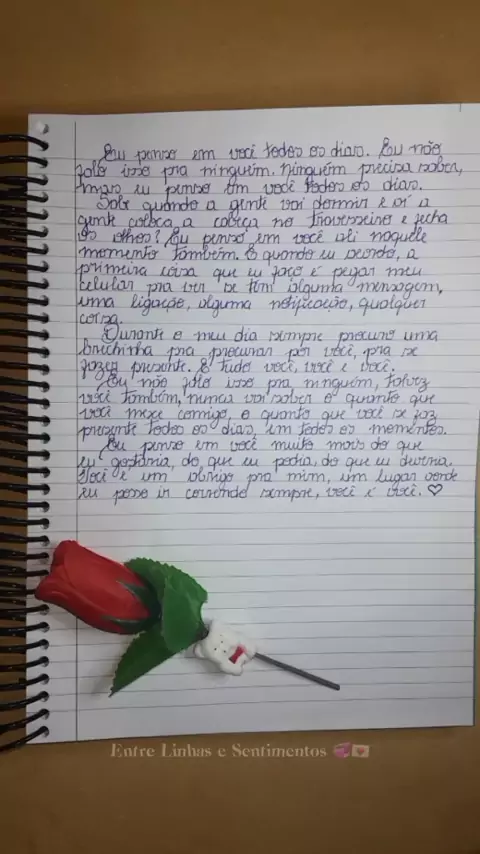 Eu penso em você todos os dias. Eu não
falo isso pra ninguém, ninguém precisa saber,
mas eu penso em você todos os dias.
Sabe quando a gente vai dormir e aí a
gente coloca a cabeça no travesseiro e fecha
os olhos? Eu penso em você ali naquele
momento também. E quando eu acordo, a
primeira coisa que eu faço é pegar meu
celular pra ver se tem alguma mensagem,
uma ligação, alguma notificação, qualquer
coisa.
Durante o meu dia sempre procuro uma
brechinha pra procurar por você, pra se
fazer presente. E tudo você, você e você.
Eu não falo isso pra ninguém, talvez
você também, nunca vai saber o quanto que
você mexe comigo, o quanto que você se faz
presente todos os dias, em todos os momentos.
Eu penso em você muito mais do que
eu gostaria, do que eu podia, do que eu deveria.
Você é um abrigo pra mim, um lugar onde
eu posso ir correndo sempre, você é você. ♡
Entre Linhas e Sentimentos 💞💌